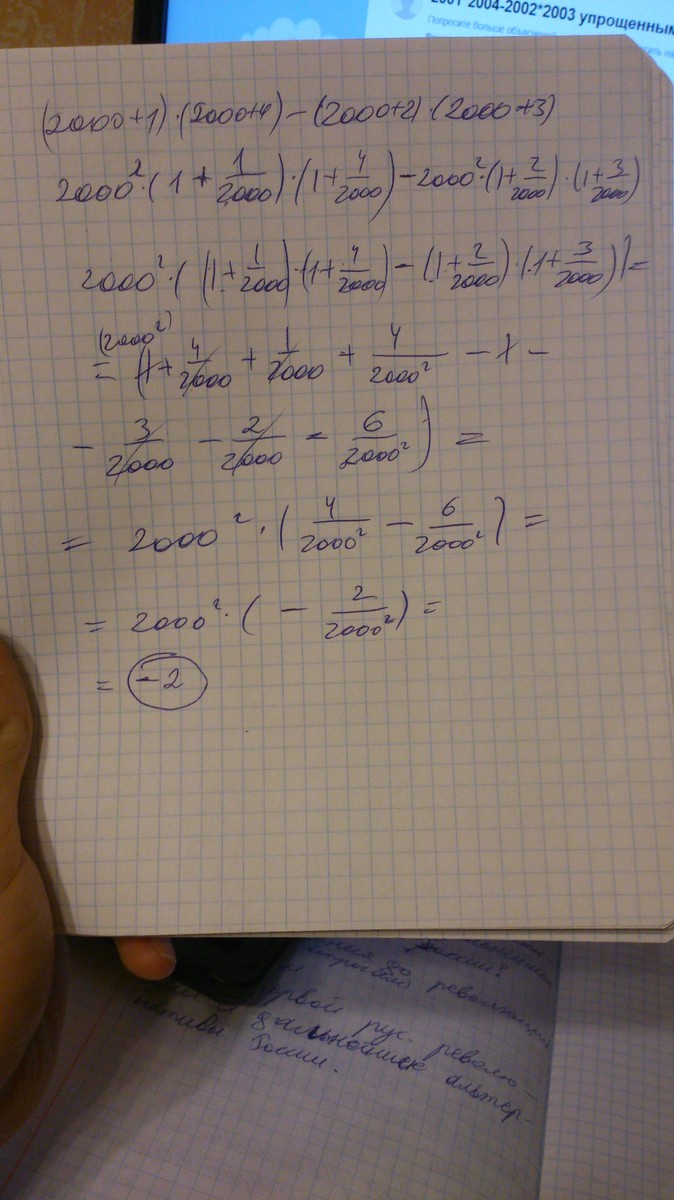 2001*2004-2002*2003 упрощенным
Попросите больше объяснений
(2000+1)·(2000+4)-(2000+2)·(2000+3)
2000²·(1+1/2000)·(1+4/2000)-2000²·(1+2/2000)·(1+3/2000)
2000²·((1+1/2000)·(1+4/2000)-(1+2/2000)·(1+3/2000))=
(2000²)
=(1+4/2000+1/2000+4/2000²-1-
-3/2000-2/2000-6/2000²)=
=2000²·(4/2000²-6/2000²)=
=2000²·(-2/2000²)=
=-2
до революции
первой рус. револю-
дальнейшие альтер-
нативы России.